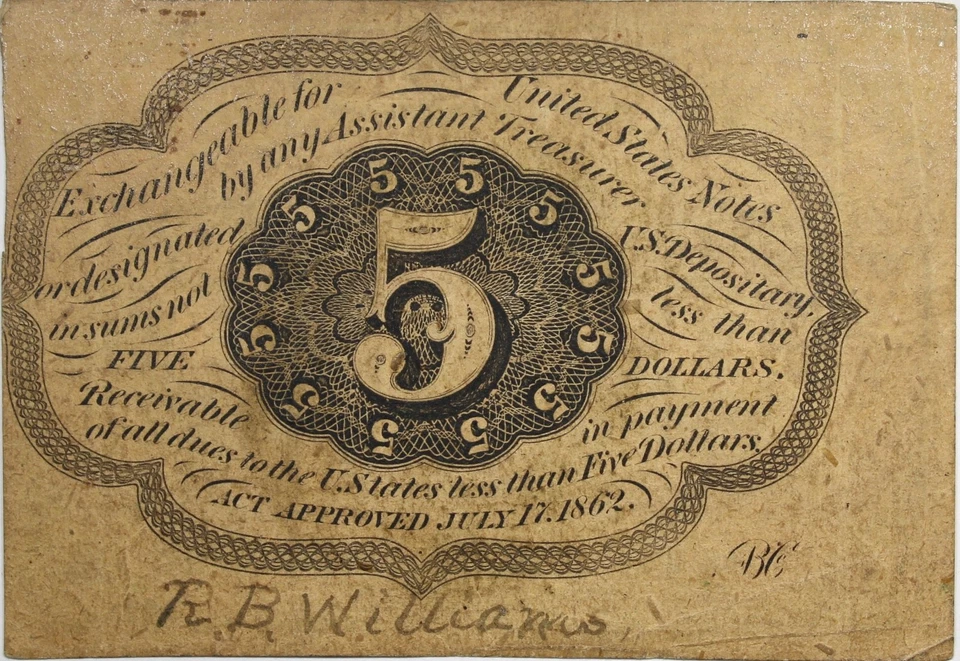 Exchangeable for United States Notes
by any Assistant Treasurer
or designated U.S. Depositary,
in sums not less than
FIVE DOLLARS.
Receivable in payment
of all dues to the U. States less than Five Dollars.
ACT APPROVED JULY 17. 1862.
5
5
5
5
5
5
5
5
5
5
5
5
5
R. B. Williams,